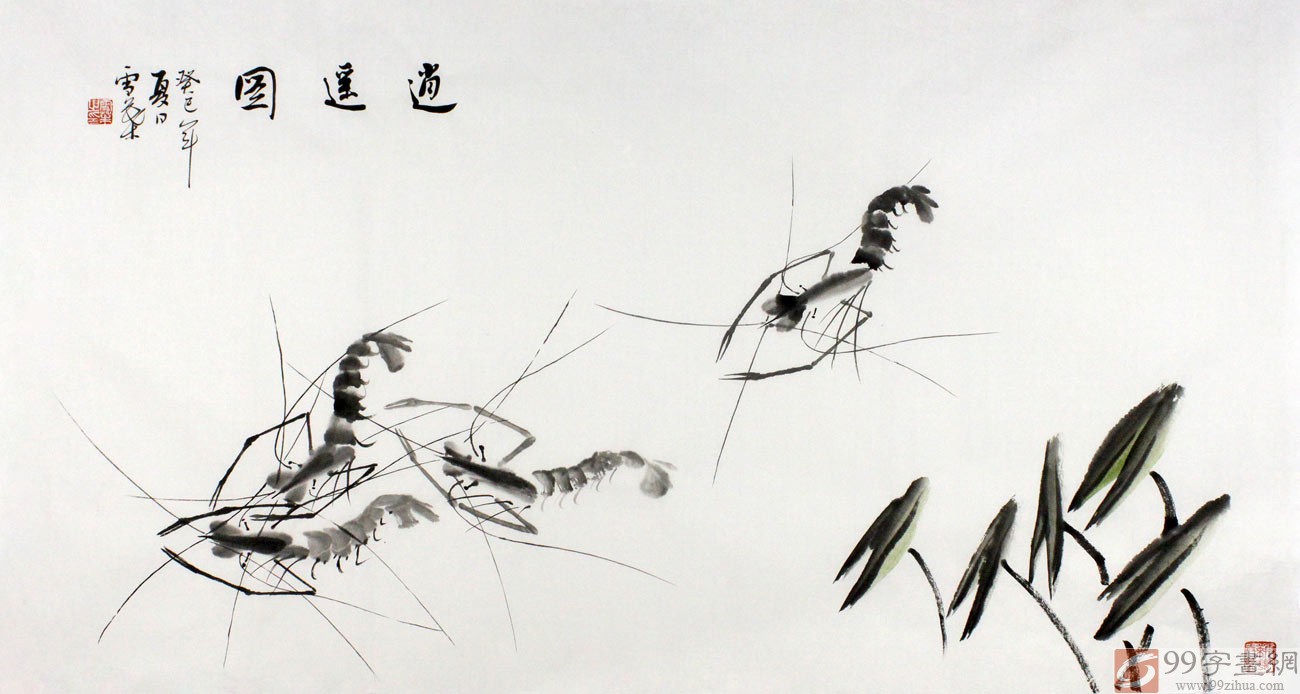 逍遥图
癸巳年
夏日
99字畫網
www.99zihua.com